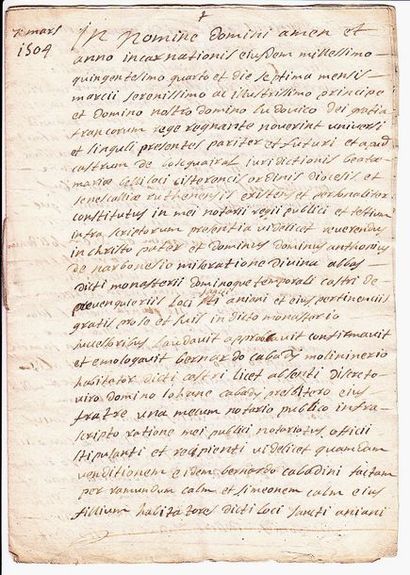 7e mars
1504
In Nomine domini amen et
anno incarnationis eiusdem millesimo
quingentesimo quarto et die septima mensis
marcii serenissimo ac illustrissimo principe
et domino nostro domino ludovico dei gratia
francorum rege regnante noverint universi
et singuli presentes pariter et futuri et apud
castrum de iurisdictionis beatae
mariae belliloci cisterciensis ordinis diocesis et
senescalliae ruthenensis existens et personaliter
constitutus in mei notarii regii publici et testium
infra scriptorum presentia videlicet reverendus
in christo pater et dominus dominus anthonius
de narbonesio miseratione divina abbas
dicti monasterii dominoque temporali castri de
loci sti aniani et eius pertinenciis
gratis pro se et suis in dicto monasterio
successoribus laudavit approbavit confirmavit
et emologavit bernardo cabady molininerio
habitator dicti castri licet absenti discreto
viro domino Iohane cabady presbitero eius
fratre una mecum notario publico infra
scripto ratione mei publici notariatus officii
stipulanti et recipienti videlicet quamdam
venditionem eidem bernardo cabadini factam
per ramundum calm et simeonem calm eius
filium habitatores dicti loci sancti aniani